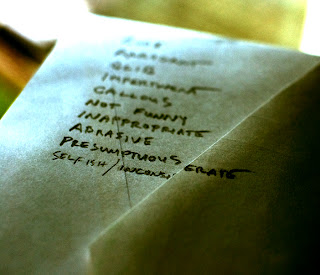 ARROGANT
GLIB
IMPERTINENT
CALLOUS
NOT FUNNY
INAPPROPRIATE
ABRASIVE
PRESUMPTUOUS
SELFISH / INCONSIDERATE